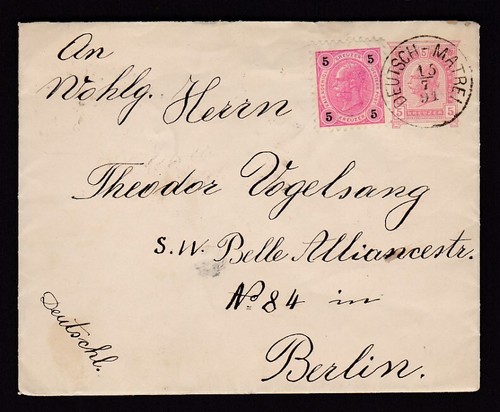 An
Wohlg. Herrn
Theodor Vogelsang
S. W. Belle Alliancestr.
No 84 in
Berlin.
Deutschl.
5 5
KREUZER
5 5
DEUTSCH-MATREI
15
7
94
5 KREUZER 5